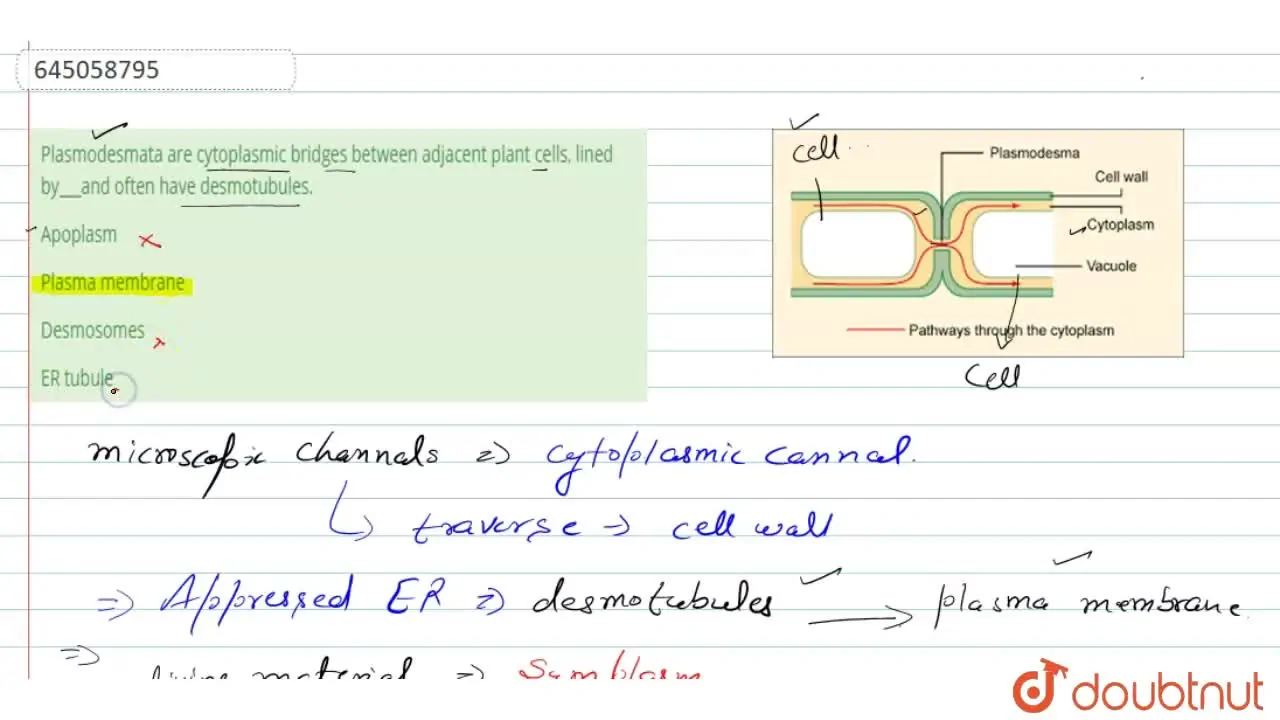 645058795
Plasmodesmata are cytoplasmic bridges between adjacent plant cells, lined
by___and often have desmotubules.
Apoplasm
Plasma membrane
Desmosomes
ER tubule
cell
Plasmodesma
Cell wall
Cytoplasm
Vacuole
Pathways through the cytoplasm
Cell
microscopic channals => cytoplasmic cannal.
traverse → cell wall
=> Appressed ER => desmotubules → plasma membrane
=> living material => Symplasm
doubtnut